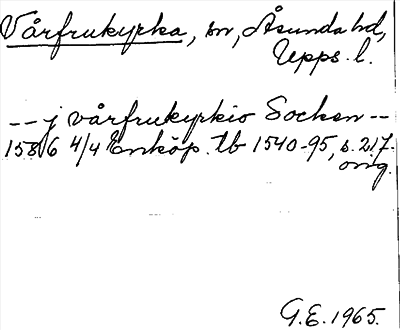 Vårfrukyrka, sn, Åsunda hd,
Upps. l.
-- j vårfrukyrkio Socken --
1586 4/4 Enköp. tb 1540-95, s. 217.
orig.
G.E. 1965.